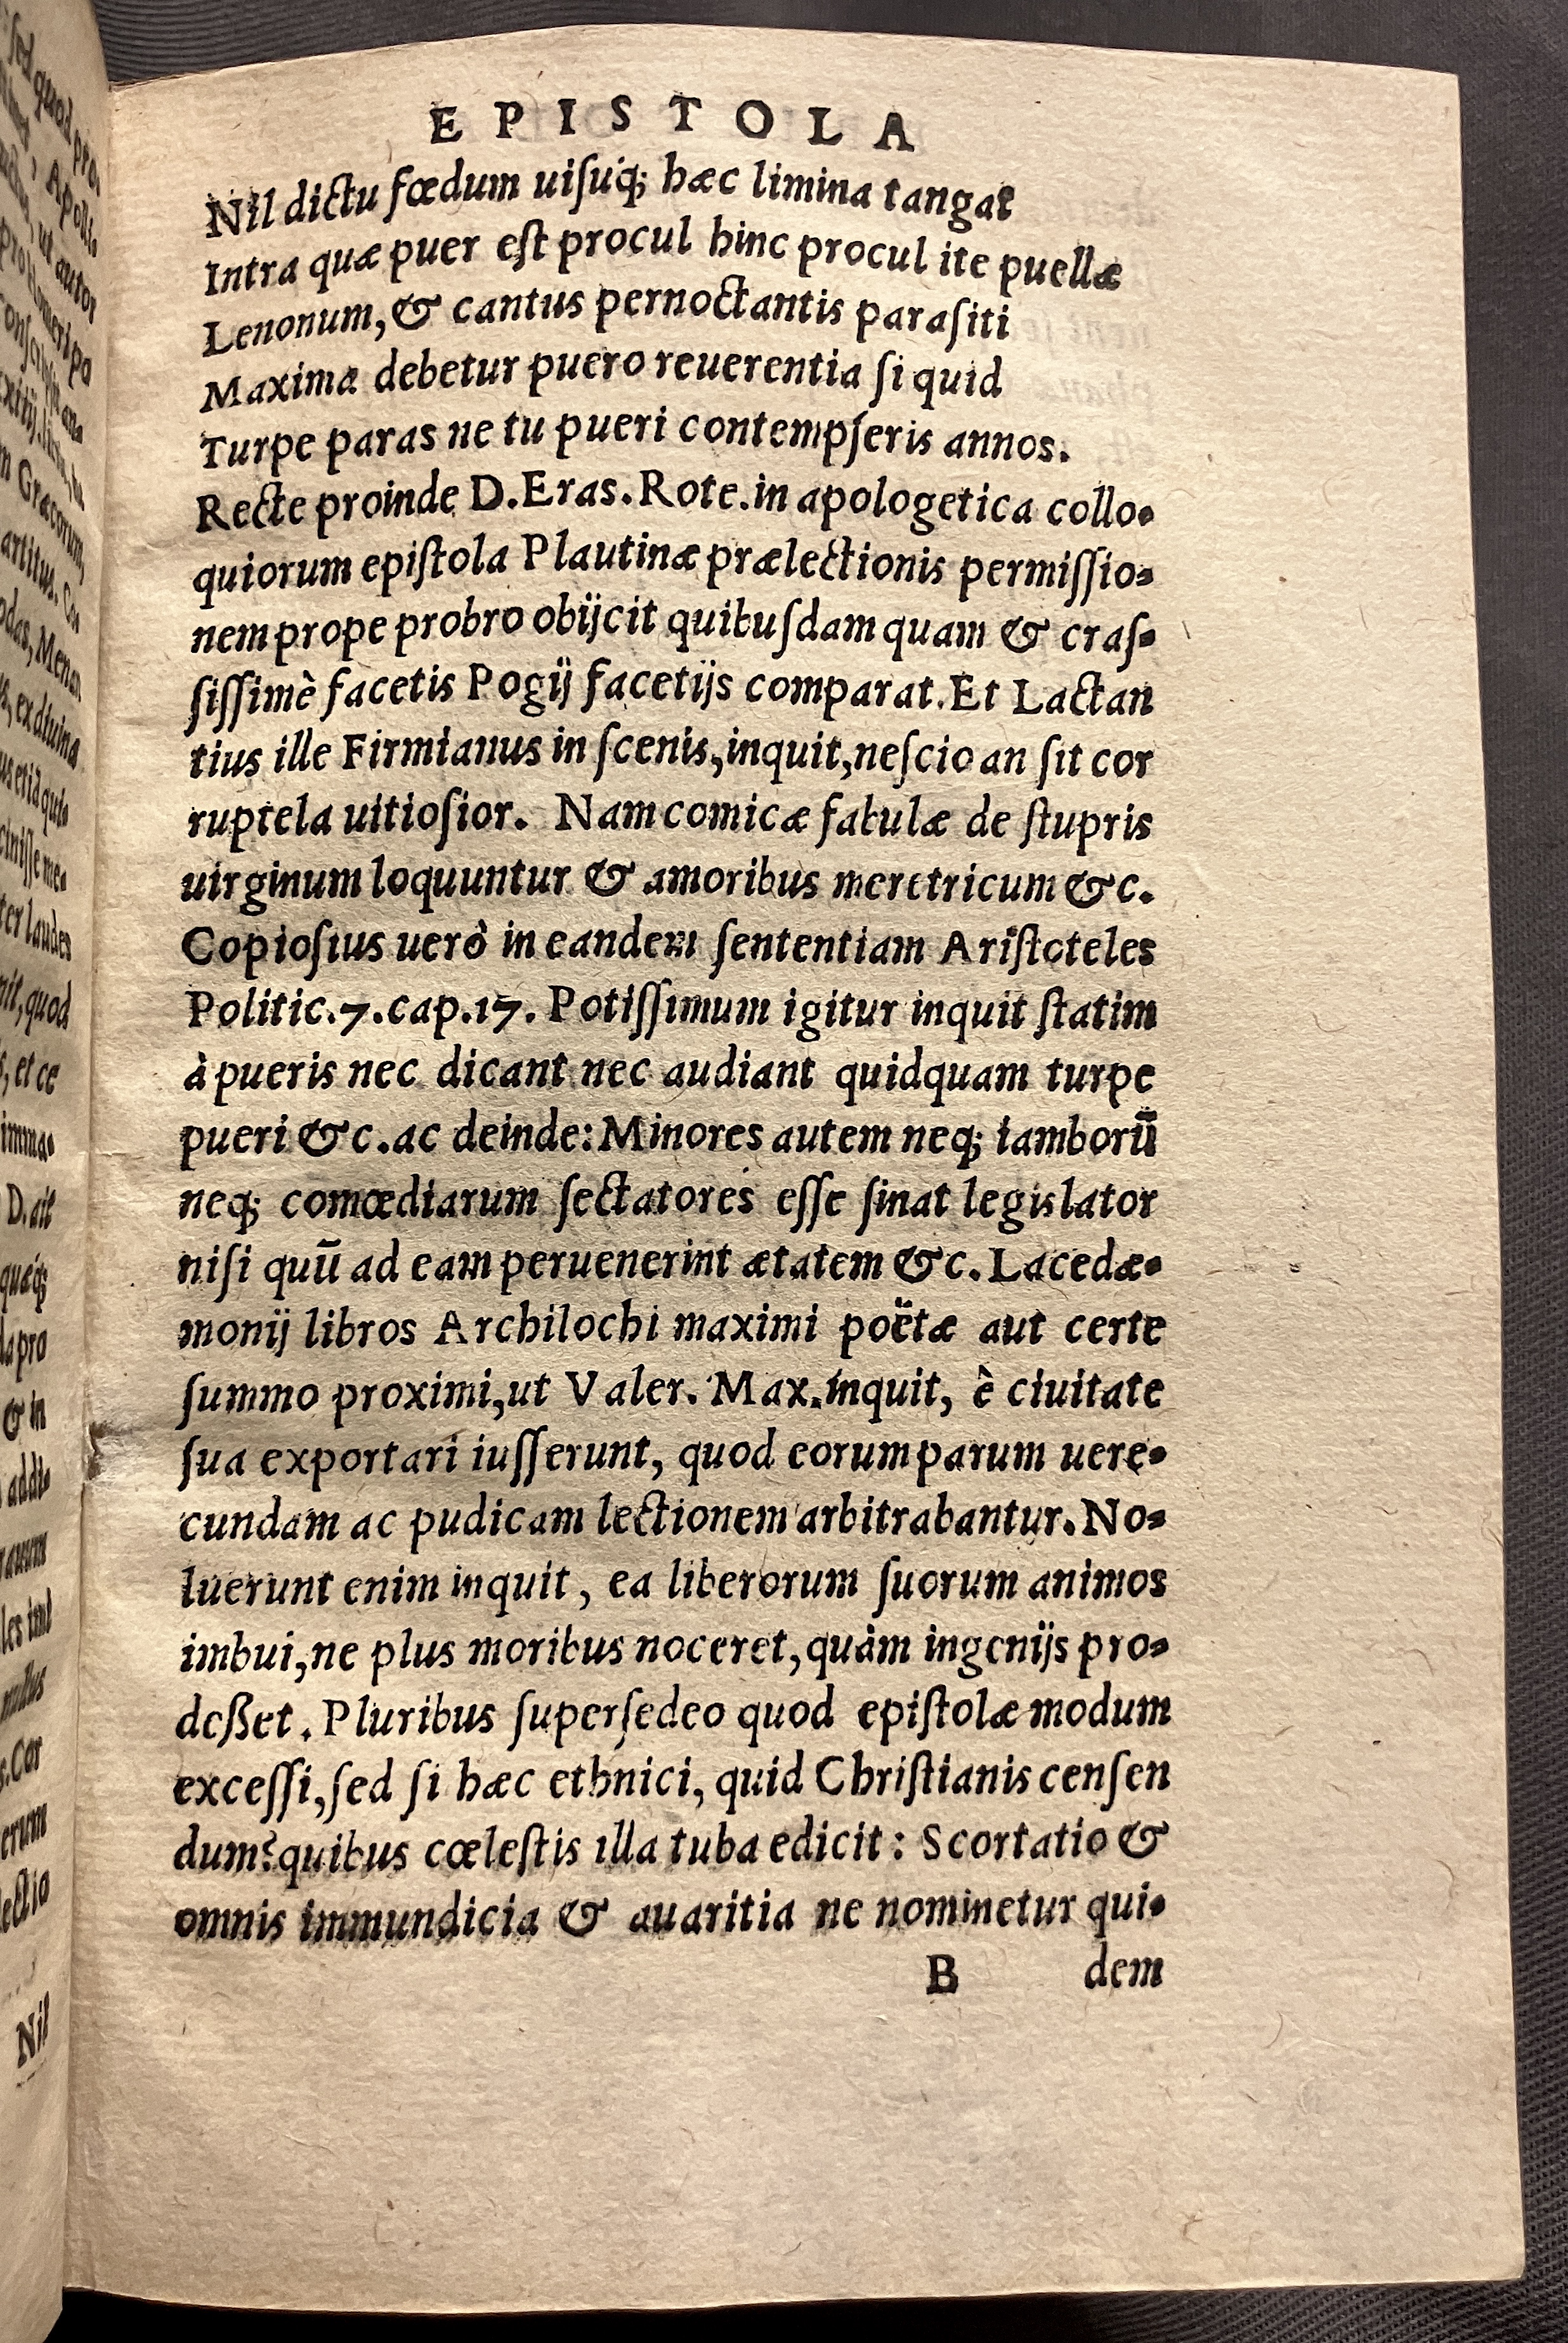 EPISTOLA
Nil dictu fœdum uiſuq́; hæc limina tangat
Intra quæ puer eſt procul hinc procul ite puellæ
Lenonum, & cantus pernoctantis paraſiti
Maxima debetur puero reuerentia ſi quid
Turpe paras ne tu pueri contempſeris annos.
Recte proinde D. Eras. Rote. in apologetica collo-
quiorum epiſtola Plautinæ prælectionis permiſſio-
nem prope probro obijcit quibuſdam quam & craſ-
ſiſſimè facetis Pogij facetijs comparat. Et Lactan
tius ille Firmianus in ſcenis, inquit, neſcio an ſit cor
ruptela uitioſior. Nam comicæ fabulæ de ſtupris
uirginum loquuntur & amoribus meretricum &c.
Copioſius uerò in eandem ſententiam Ariſtoteles
Politic. 7. cap. 17. Potiſſimum igitur inquit ſtatim
à pueris nec dicant nec audiant quidquam turpe
pueri &c. ac deinde: Minores autem neq; iamborū
neq; comœdiarum ſectatores eſſe ſinat legislator
niſi quū ad eam peruenerint ætatem &c. Lacedæ-
monij libros Archilochi maximi poëtæ aut certe
ſummo proximi, ut Valer. Max. inquit, è ciuitate
ſua exportari iuſſerunt, quod eorum parum uere-
cundam ac pudicam lectionem arbitrabantur. No-
luerunt enim inquit, ea liberorum ſuorum animos
imbui, ne plus moribus noceret, quàm ingenijs pro-
deßet. Pluribus ſuperſedeo quod epiſtolæ modum
exceſſi, ſed ſi hæc ethnici, quid Chriſtianis cenſen
dum? quibus cœleſtis illa tuba edicit: Scortatio &
omnis immundicia & auaritia ne nominetur qui-
B dem